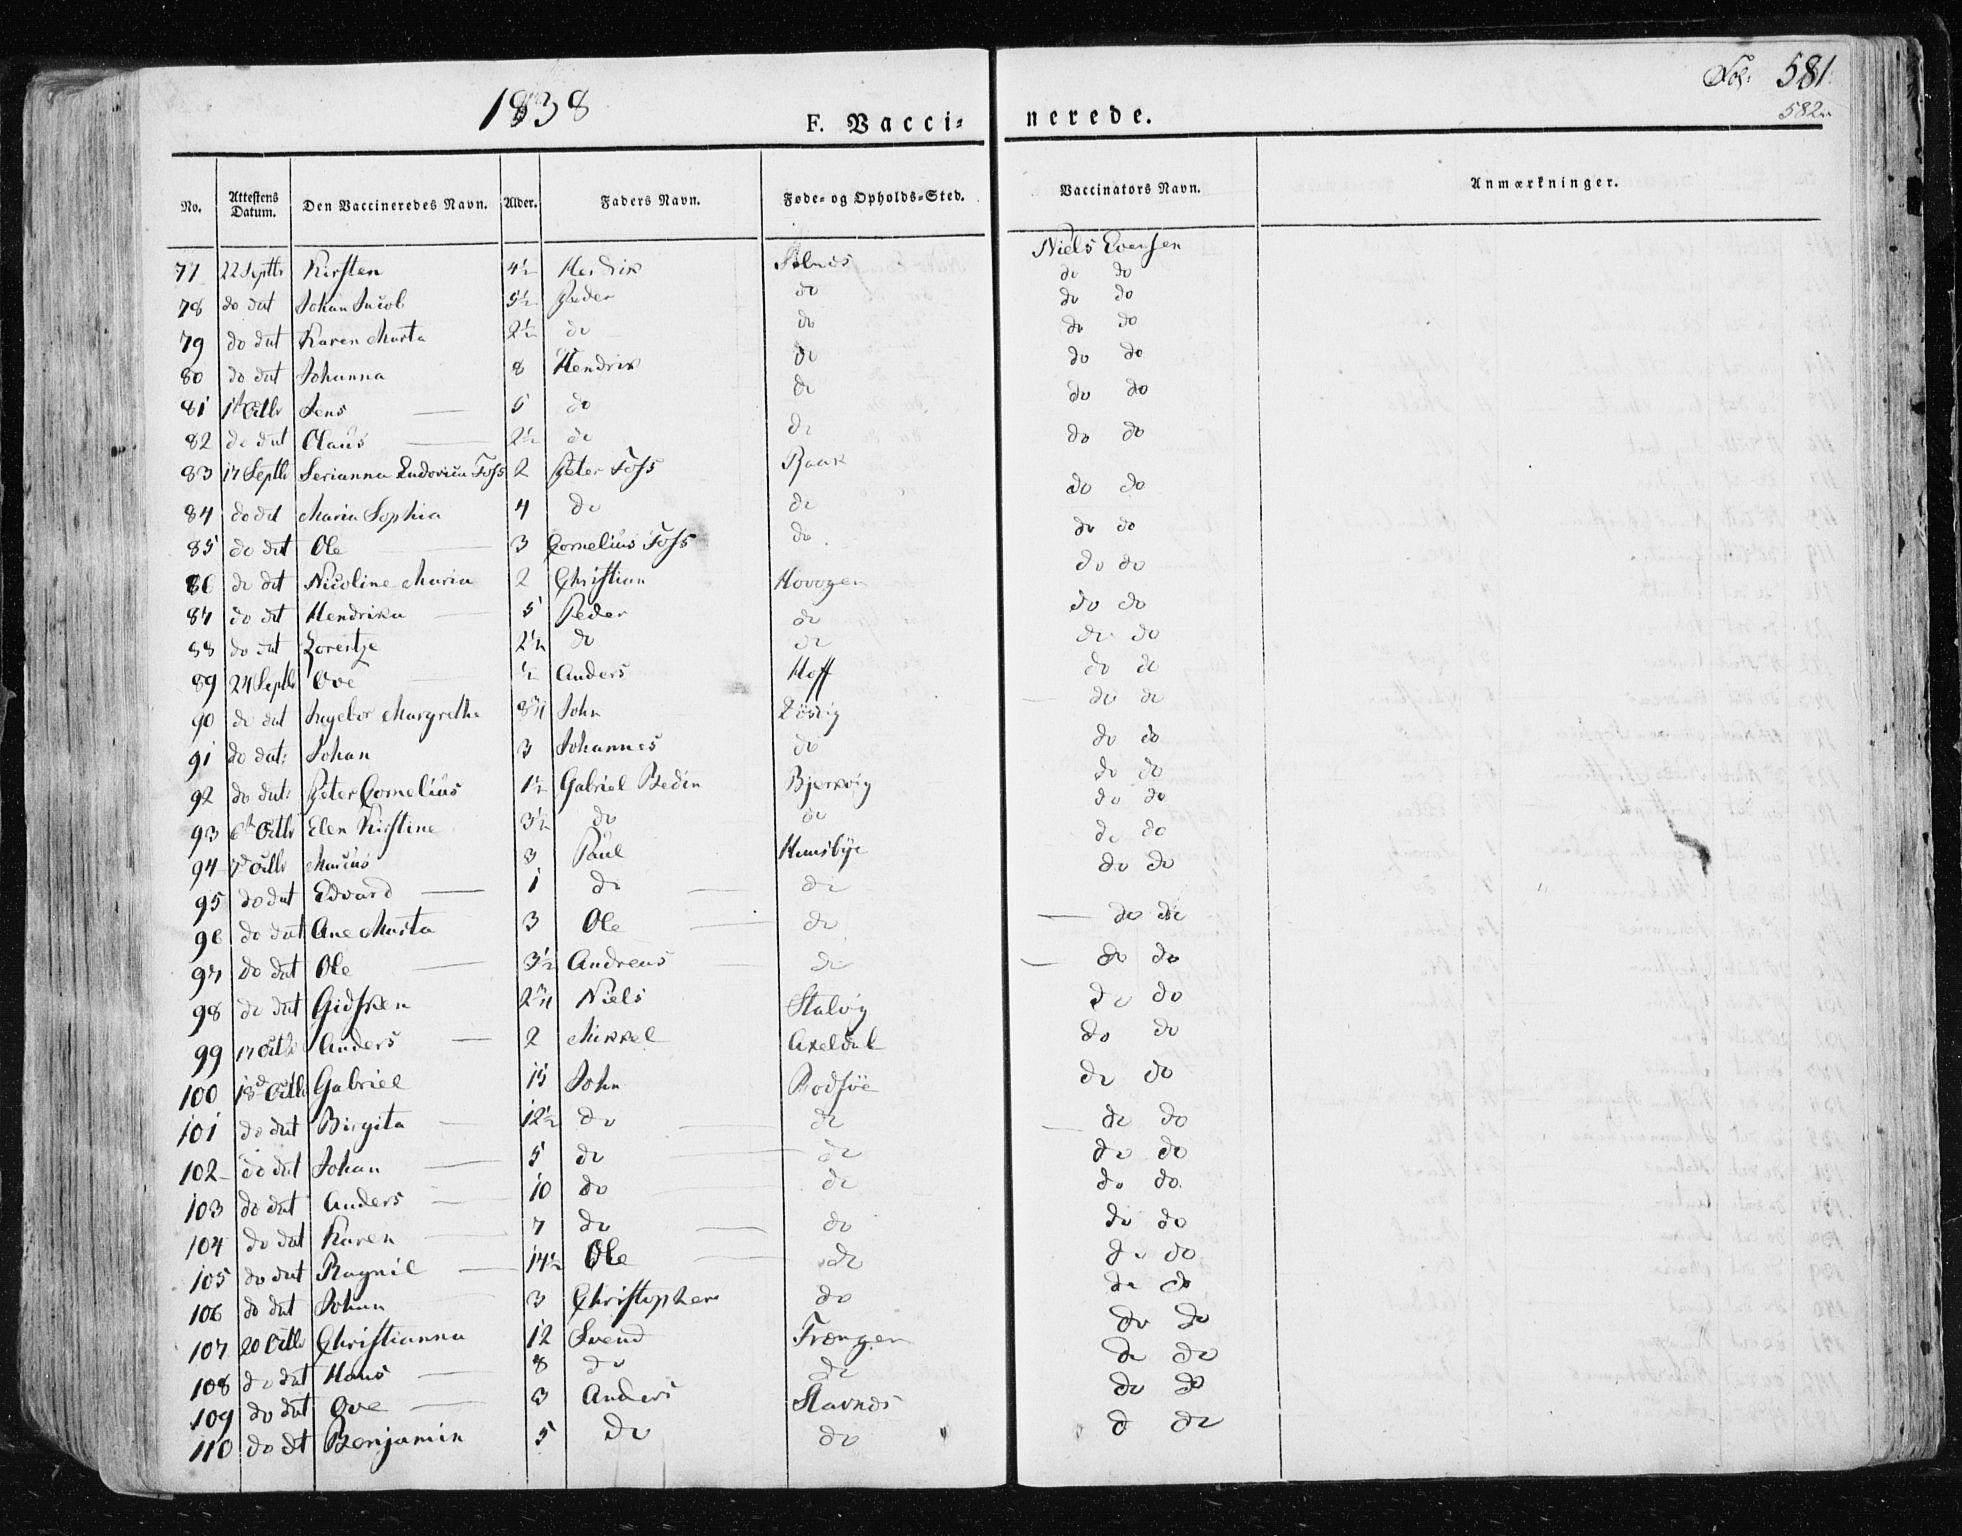 1838
Fol: 581
582
F. Vacci-nerede.
No. Attestens Datum. Den Vaccineredes Navn. Alder. Faders Navn. Føde- og Opholds-Sted. Vaccinators Navn. Anmærkninger.
77 22 Septbr Kirsten 4½ Hendrik Solnes Niels Evensen
78 do dat Johan Jacob 5½ Peder do do do
79 do dat Karen Marta 2½ do do do do
80 do dat Johanna 8 Hendrik do do do
81 1st Octbr Jens 5 do do do do
82 do dat Olaus 2½ do do do do
83 17 Septbr Serianna Ludovica Foss 2 Peter Foss Raak do do
84 do dat Maria Sophia 4 do do do do
85 do dat Ole 3 Cornelius Foss do do do
86 do dat Nicoline Maria 2 Christian Hovogen do do
87 do dat Hendrika 5 Peder do do do
88 do dat Lorentze 2½ do do do do
89 24 Septbr Ove ½ Anders Hoff do do
90 do dat Ingebor Margretha John do do
91 do dat: Johan 3 Johannes do do do
92 do dat: Peter Cornelius 1½ Gabriel Bedin Bjerkvig do do
93 6th Octbr Elen Kirstine 3½ do do do do
94 7d Octbr Marius 3 Paul do do
95 do dat Edvard 1 do do do do
96 do dat Ane Marta 3 Ole do do do
97 do dat Ole 3½ Andreas do do do
98 do dat Gidsken Niels Stalvig do do
99 17 Octbr Anders 2 Mikkel Axeldal do do
100 18d Octbr Gabriel 15 John Rodsöe do do
101 do dat Birgita 12½ do do do do
102 do dat Johan 5 do do do do
103 do dat Anders 10 do do do do
104 do dat Karen 7 do do do do
105 do dat Ragnil 14½ Ole do do do
106 do dat Johan 3 Christopher do do do
107 20 Octbr Christianna 12 Svend Trongen do do
108 do dat Hans 8 do do do do
109 do dat Ove 3 Anders Stavnes do do
110 do dt Benjamin 5 do do do do